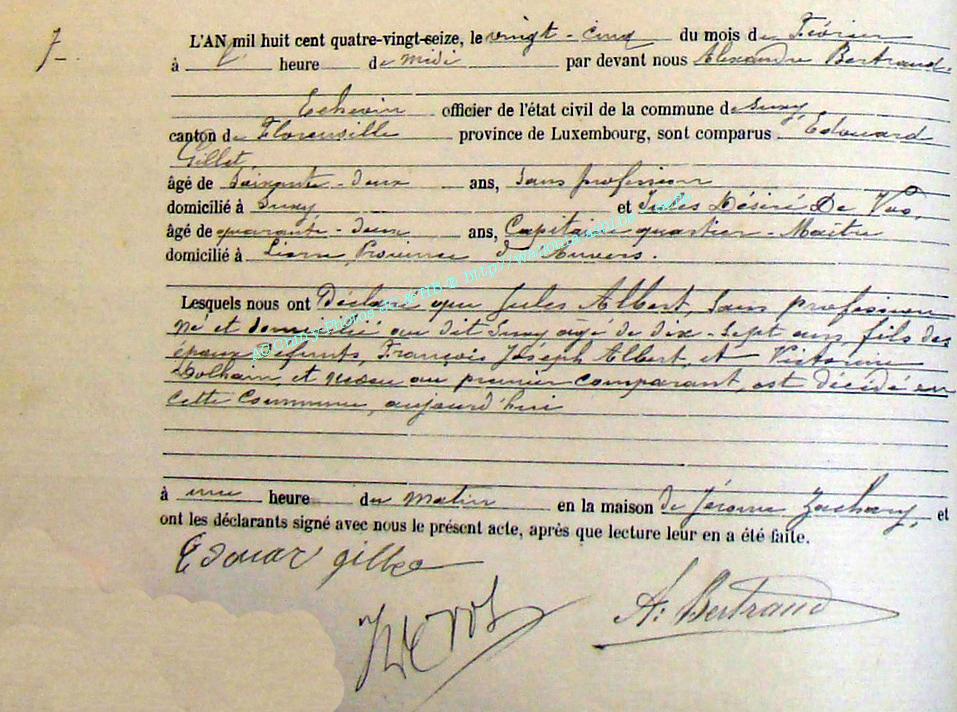 7_
L'AN mil huit cent quatre-vingt-seize, le vingt-cinq du mois de Février
à l' heure de midi par devant nous Alexandre Bertrand
Echevin officier de l'état civil de la commune de Suxy
canton de Florenville province de Luxembourg, sont comparus Edouard
Gillet
âgé de Soixante-deux ans, Sans profession
domicilié à Suxy et Jules Désiré De Vos,
âgé de quarante-deux ans, Capitaine quartier-Maître
domicilié à Province d'Anvers.
Lesquels nous ont Déclaré que Jules Albert, Sans profession
né et domicilié au dit Suxy âgé de dix-sept ans, fils des
époux défunts, François Joseph Albert, et Victorine
Dolhain et neveu au premier comparant, est décédé en
cette Commune, aujourd'hui
à une heure du matin en la maison de Jérome Zachary, et
ont les déclarants signé avec nous le présent acte, après que lecture leur en a été faite.
Edouar gillet
A. Bertrand